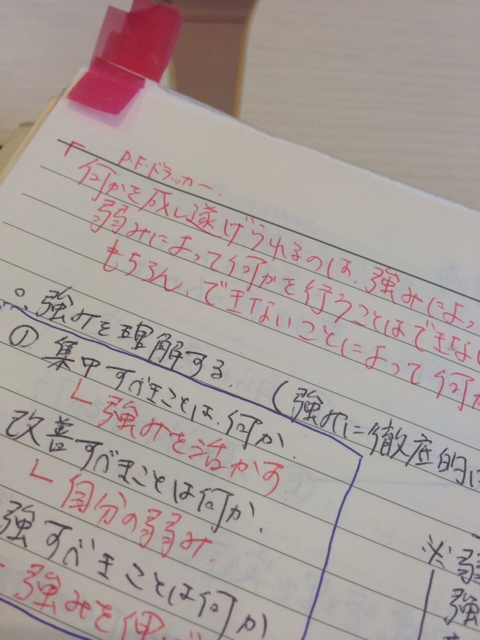 P.F.ドラッカー
「何かを成し遂げられるのは、強みによっ
弱みによって何かを行うことはできない
もちろん、できないことによって何か
○強みを理解する。(強みに徹底的に
① 集中すべきことは、何か。
└ 強みを活かす
改善すべきことは何か。
└ 自分の弱み。
強すべきことは何か
強みを伸ば
※弱
強